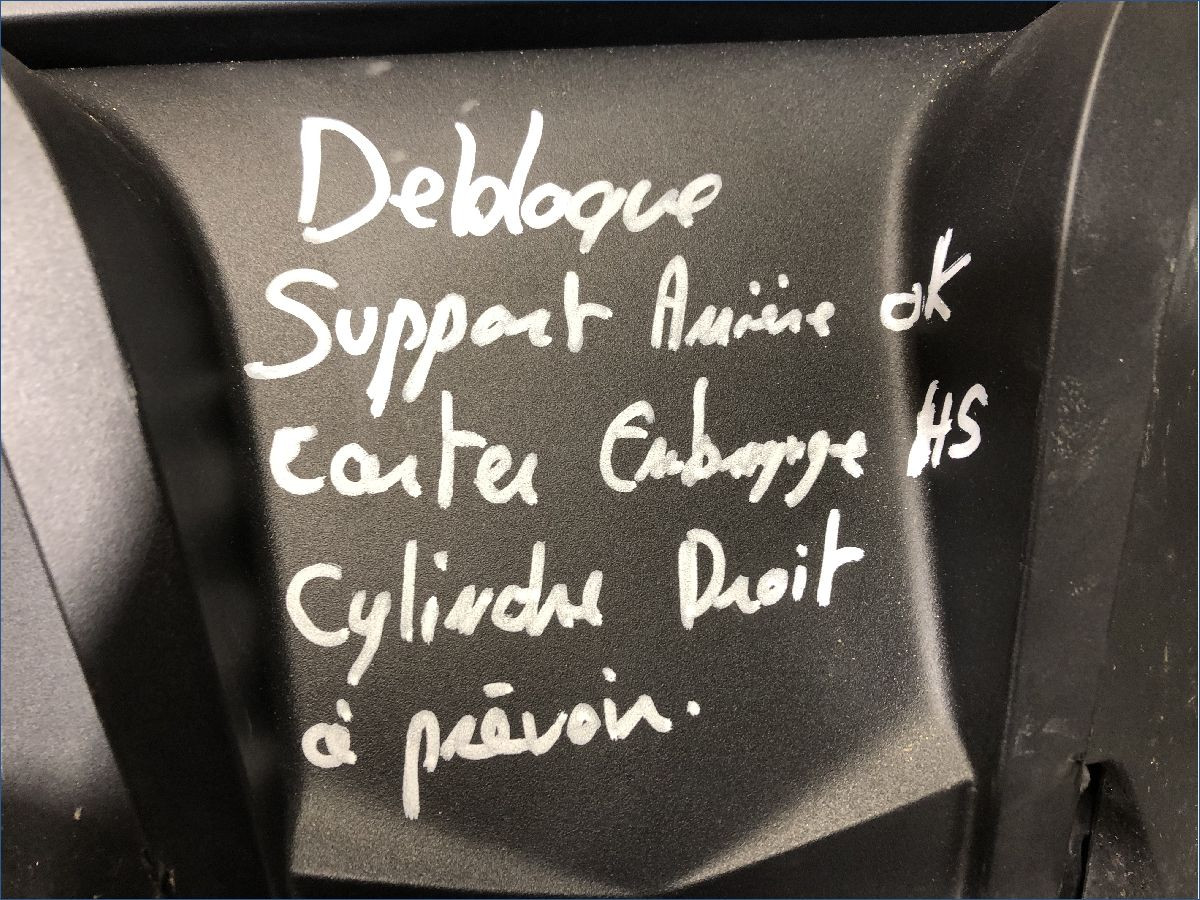 Debloque
Support Arrière OK
Carter Embrayage HS
Cylindre Droit
à prévoir.